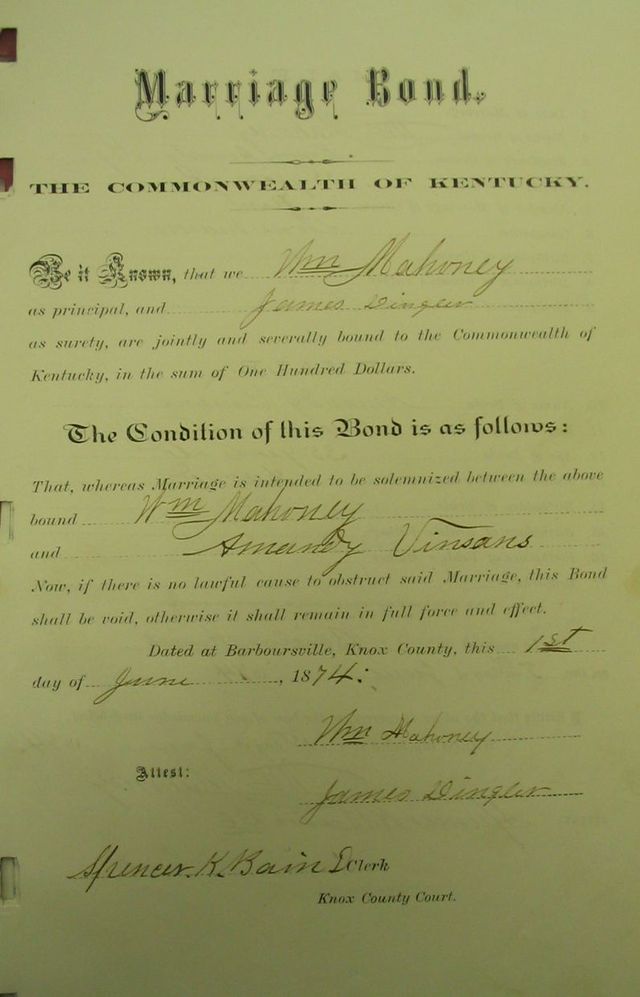 Marriage Bond.
THE COMMONWEALTH OF KENTUCKY.
Be it Known, that we Wm Mahoney
as principal, and James Dingler
as surety, are jointly and severally bound to the Commonwealth of
Kentucky, in the sum of One Hundred Dollars.
The Condition of this Bond is as follows:
That, whereas Marriage is intended to be solemnized between the above
bound Wm Mahoney
and Amandy Vinsans
Now, if there is no lawful cause to obstruct said Marriage, this Bond
shall be void, otherwise it shall remain in full force and effect.
Dated at Barboursville, Knox County, this 1st
day of June, 1874:
Wm Mahoney
Attest:
James Dingler
Spencer K. Bain D Clerk
Knox County Court.